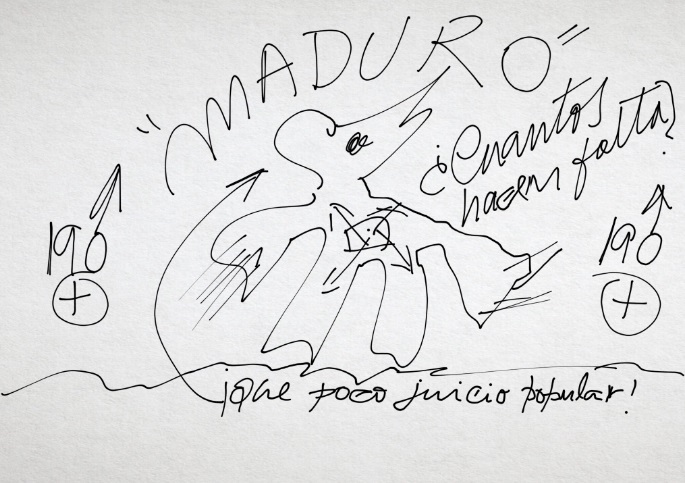 "MADURO"
¿Cuantos
hacen falta?
190
+
190
+
¡Que poco juicio popular!